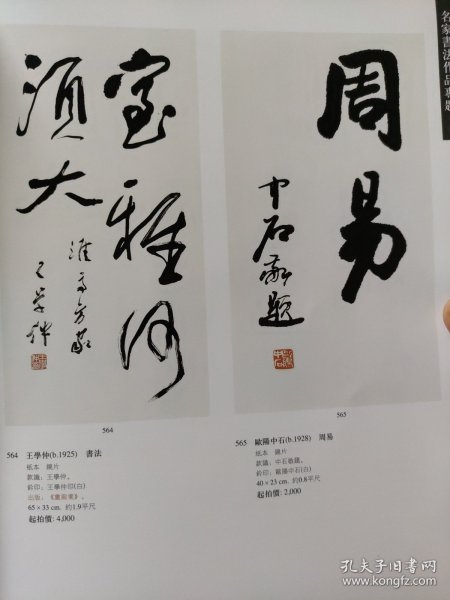 名家書法作品專題
室雅何
須大
王學仲
周易
中石敬題
564
565
564 王學仲(b.1925) 書法
紙本 鏡片
款識:王學仲。
鈐印:王學仲印(白)
65×33 cm. 約1.9平尺
起拍價: 4,000
565 歐陽中石(b.1928) 周易
紙本 鏡片
款識:中石敬題。
鈐印:歐陽中石(白)
40×23 cm. 約0.8平尺
起拍價: 2,000
孔夫子旧书网
www.kongfz.com